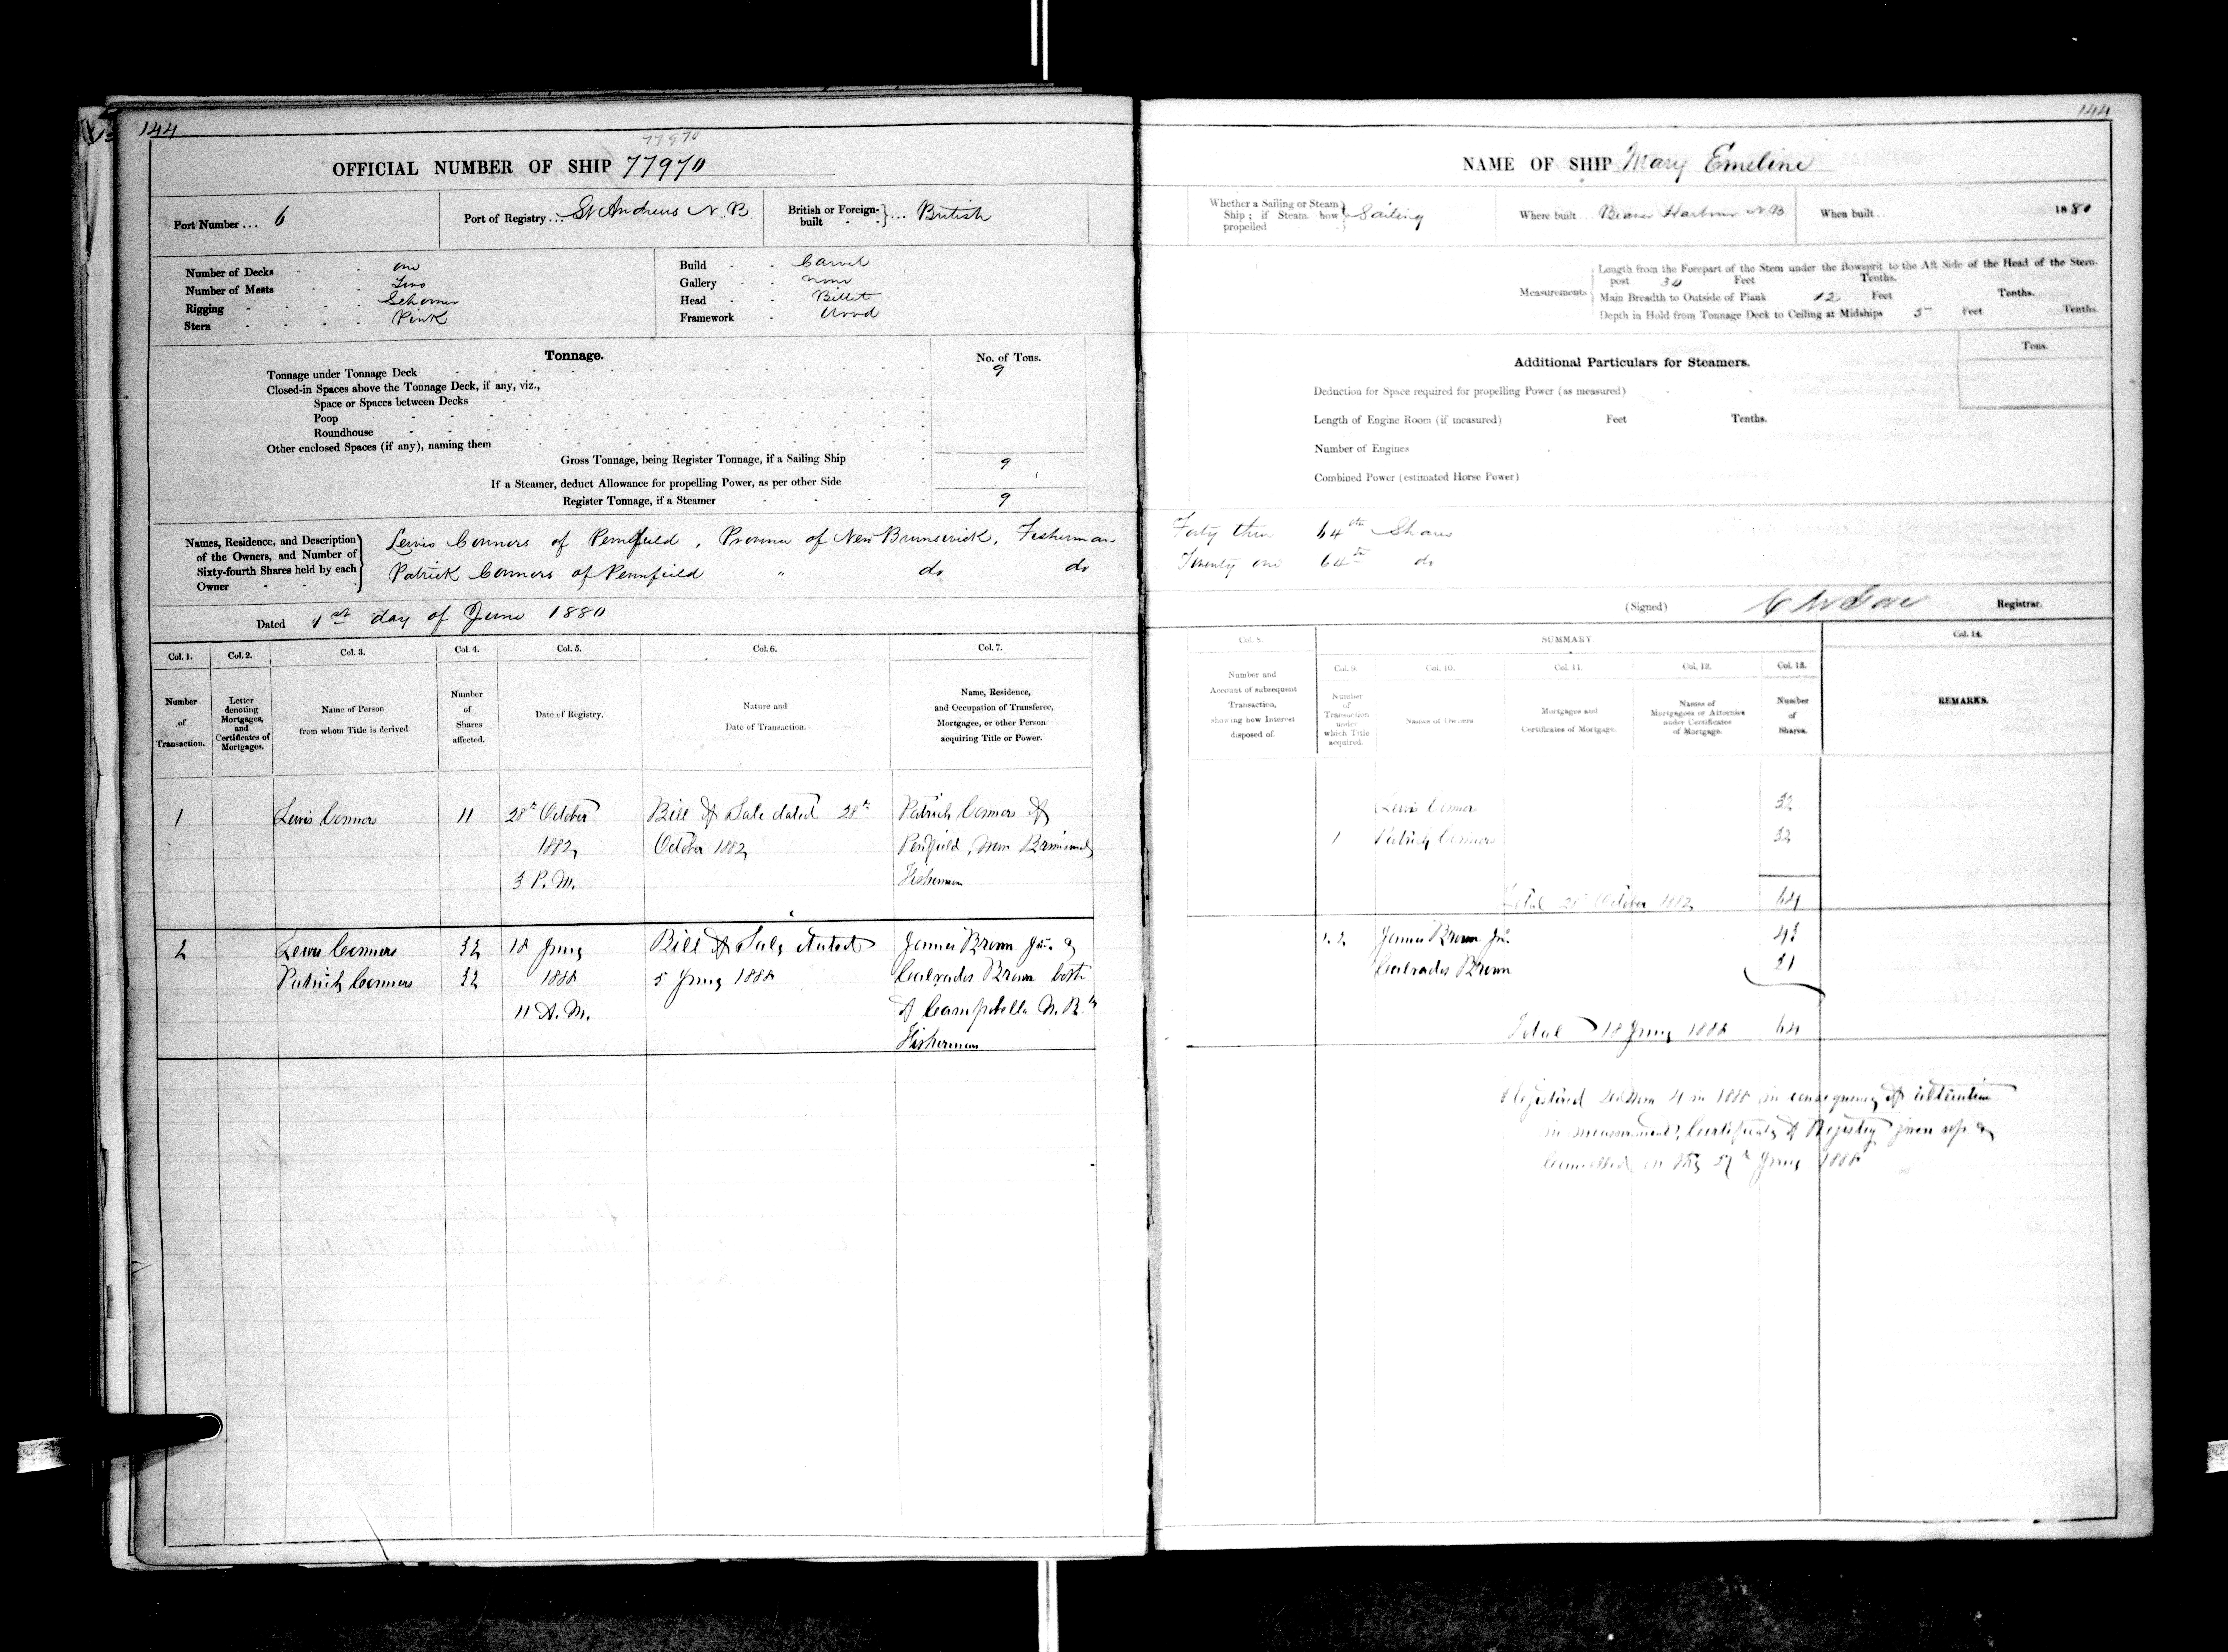 144
77970
OFFICIAL NUMBER OF SHIP 77970
Port Number ... 6
Port of Registry ... St Andrews N. B.
British or Foreign-built } ... British
Number of Decks - - one
Number of Masts - - Two
Rigging - - - Schooner
Stern - - - - Pink
Build - - Carvel
Gallery - - none
Head - - Billet
Framework - Wood
Tonnage.
No. of Tons.
Tonnage under Tonnage Deck 9
Closed-in Spaces above the Tonnage Deck, if any, viz.,
Space or Spaces between Decks
Poop
Roundhouse
Other enclosed Spaces (if any), naming them
Gross Tonnage, being Register Tonnage, if a Sailing Ship 9
If a Steamer, deduct Allowance for propelling Power, as per other Side
Register Tonnage, if a Steamer 9
Names, Residence, and Description
of the Owners, and Number of
Sixty-fourth Shares held by each
Owner
Lewis Connors of Pennfield, Province of New Brunswick, Fisherman
Patrick Connors of Pennfield " do do
Dated 1st day of June 1880
Col. 1. Col. 2. Col. 3. Col. 4. Col. 5. Col. 6. Col. 7.
Number of Transaction.
Letter denoting Mortgages, and Certificates of Mortgages.
Name of Person from whom Title is derived
Number of Shares affected.
Date of Registry.
Nature and Date of Transaction.
Name, Residence, and Occupation of Transferee, Mortgagee, or other Person acquiring Title or Power.
1 Lewis Connors 11 28th October Bill of Sale dated 28th Patrick Connors of
1882 October 1882 Penfield, New Brunswick
3 P. M. Fisherman
2 Lewis Connors 32 18 June Bill of Sale dated James Brown Jnr. &
Patrick Connors 32 1888 5 June 1888 Calvados Brown both
11 A. M. of Campobello N. B.
Fishermen
144
NAME OF SHIP Mary Emeline
Whether a Sailing or Steam
Ship; if Steam, how
propelled } Sailing
Where built ... Beaver Harbour N B
When built .. 1880
Measurements
Length from the Forepart of the Stem under the Bowsprit to the Aft Side of the Head of the Stern-
post Feet Tenths.
Main Breadth to Outside of Plank 12 Feet Tenths.
Depth in Hold from Tonnage Deck to Ceiling at Midships 5 Feet Tenths.
Additional Particulars for Steamers.
Tons.
Deduction for Space required for propelling Power (as measured)
Length of Engine Room (if measured) Feet Tenths.
Number of Engines
Combined Power (estimated Horse Power)
Forty three 64th Shares
Twenty one 64th do
(Signed) C M Gove Registrar.
Col. 8. SUMMARY Col. 14.
Col. 9. Col. 10. Col. 11. Col. 12. Col. 13.
Number and Account of subsequent Transaction, showing how Interest disposed of.
Number of Transaction under which Title acquired.
Names of Owners
Mortgages and Certificates of Mortgage.
Names of Mortgagees or Attornies under Certificates of Mortgage.
Number of Shares.
REMARKS.
Lewis Connor 32
1 Patrick Connors 32
Total 28th October 1882 64
1.2 James Brown Jnr. 43
Calvados Brown 21
Total 18 June 1888 64
Registered de Novo 4 in 1888 in consequence of alteration
in measurement, Certificate of Registry given up &
Cancelled on the June 1888